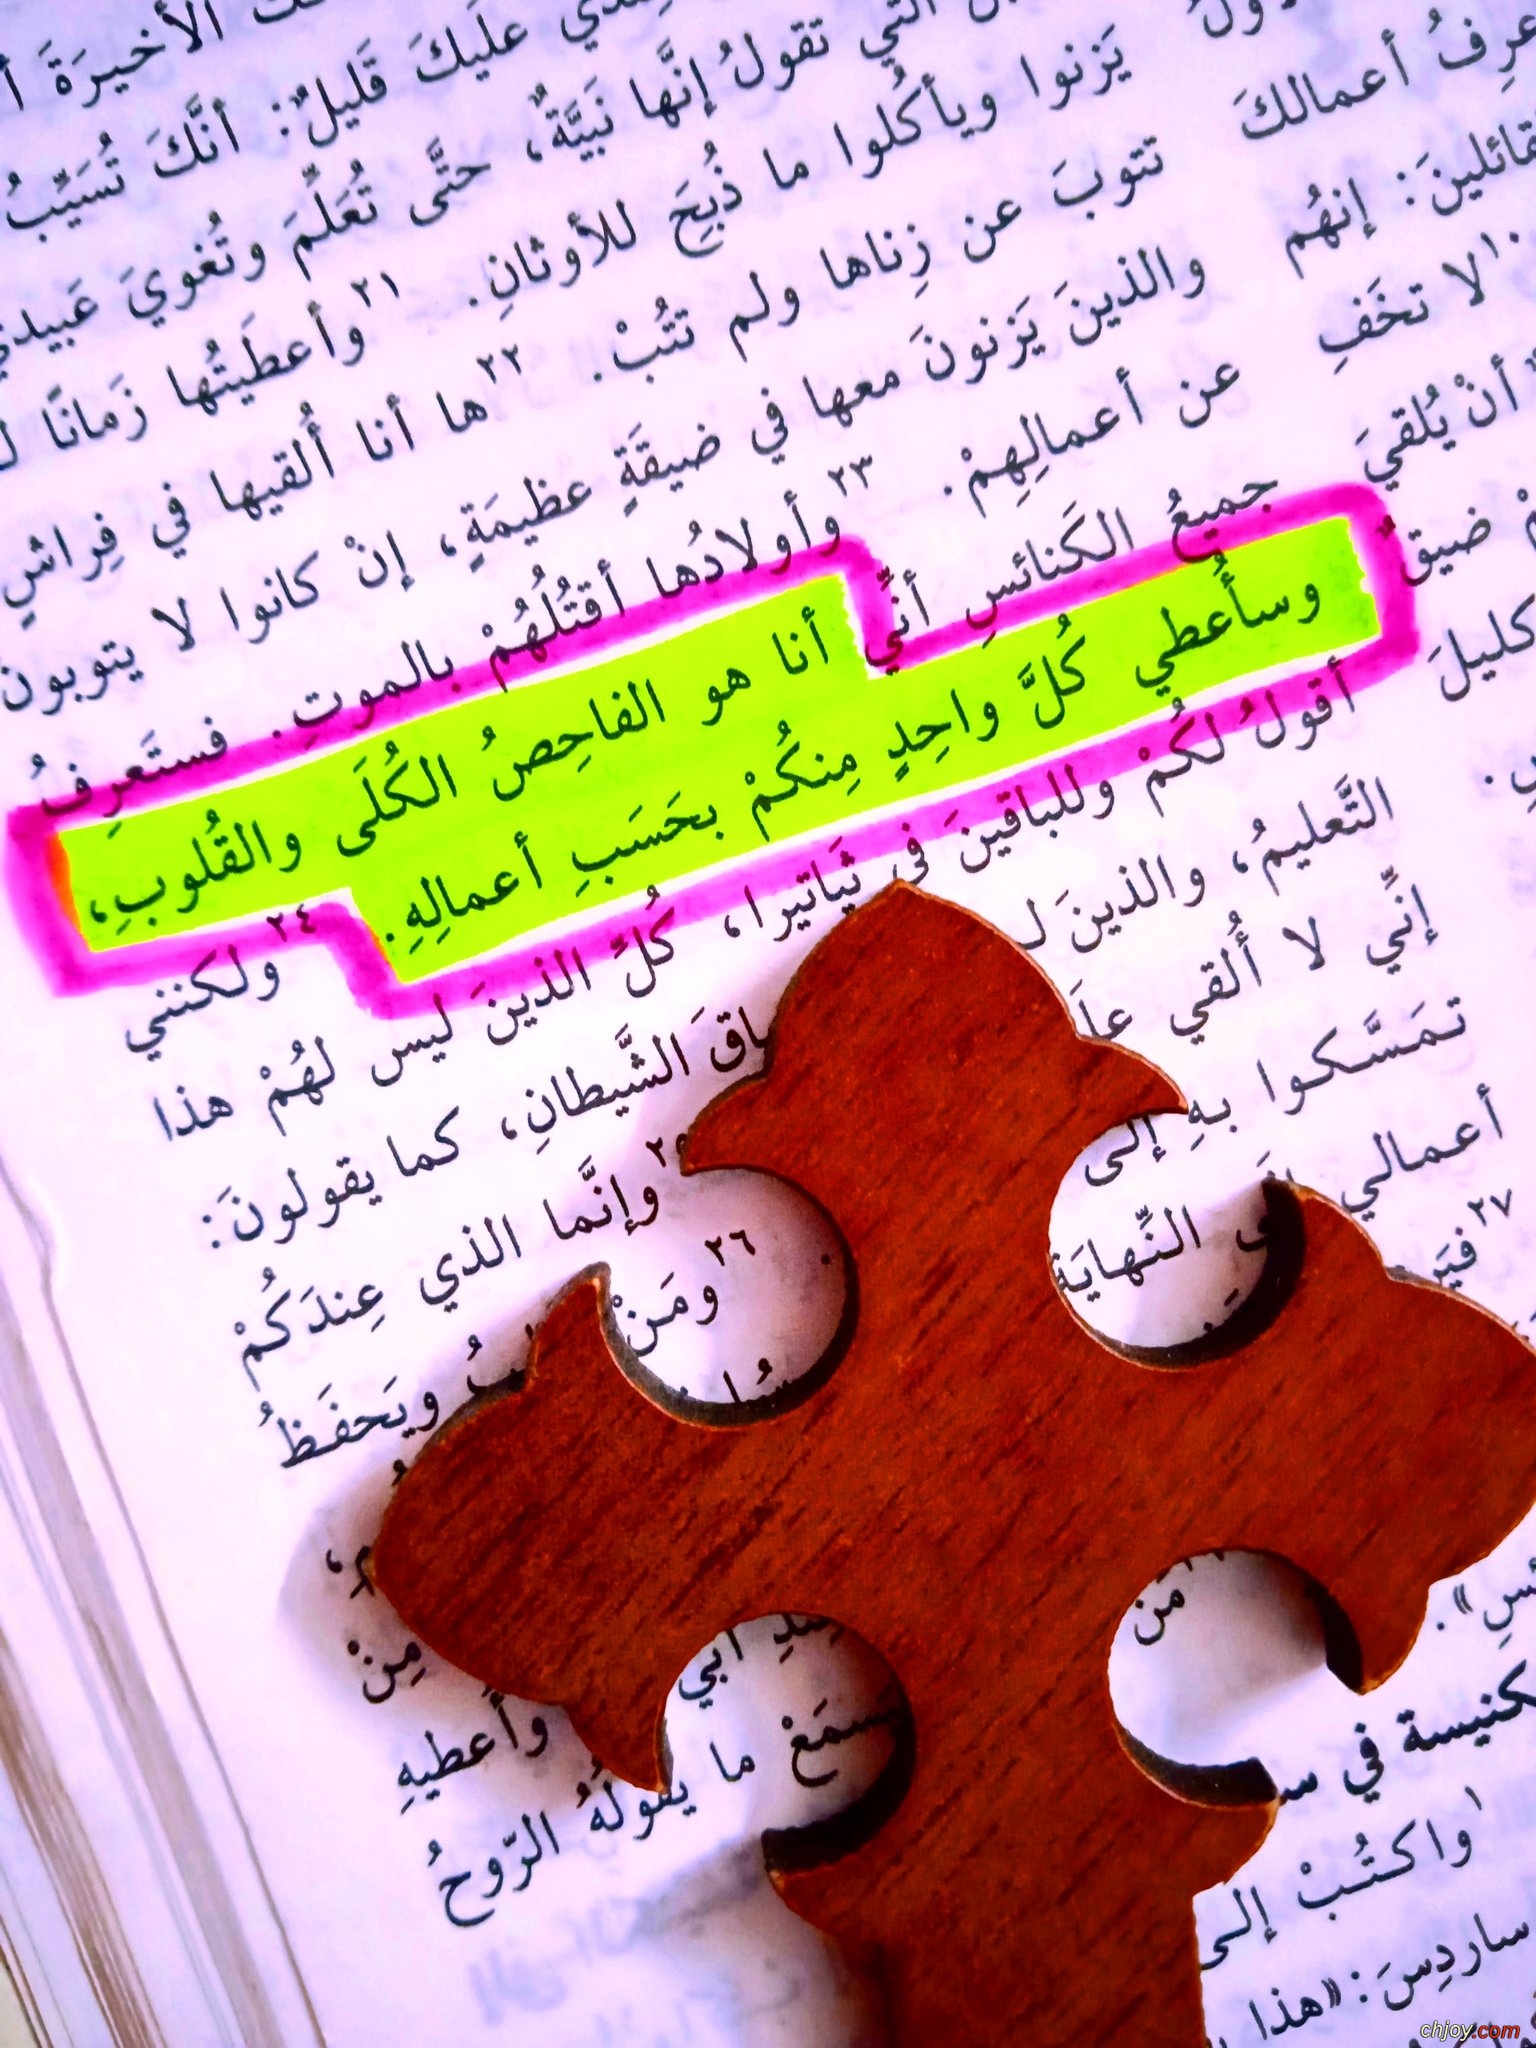 أعمالكَ
إنهُم
١٠لا تخَفِ
أنْ يُلقيَ
ضيقٌ
كليلَ
الأخيرَةَ
عليكَ قَليلٌ: أنَّكَ تُسَيِّبُ
التي تقولُ إنَّها نَبيَّةٌ، حتَّى تُعَلِّمَ وتُغويَ
يَزنوا ويأكُلوا ما ذُبِحَ للأوثانِ. ٢١وأعطَيتُها زَمانًا
تتوبَ عن زِناها ولم تتُبْ. ٢٢ها أنا أُلقيها في فِراشٍ
والذينَ يَزنونَ معها في ضيقَةٍ عظيمَةٍ، إنْ كانوا لا يتوبونَ
عن أعمالِهِمْ. ٢٣وأولادُها أقتُلُهُمْ بالموتِ. فستَعرِفُ
جميعُ الكَنائسِ أنِّي أنا هو الفاحِصُ الكُلَى والقُلوبِ،
وسأُعطي كُلَّ واحِدٍ مِنكُمْ بحَسَبِ أعمالِهِ. ٢٤ولكنني
أقولُ لكُمْ وللباقينَ في ثَياتيرا، كُلِّ الذينَ ليس لهُمْ هذا
التَّعليمُ، والذينَ الشَّيطانِ، كما يقولونَ:
إنِّي لا أُلقي وإنَّما الذي عِندَكُمْ
تمَسَّكوا بهِ إلَى ٢٦ومَنْ ويَحفَظُ
أعمالي النِّهايَةِ
٢٧
مِنْ
أبي وأُعطيهِ
ما يقولُهُ الرّوحُ
كنيسة في
١واكتُبْ إلى
ساردِسَ: «هذا
chjoy.com